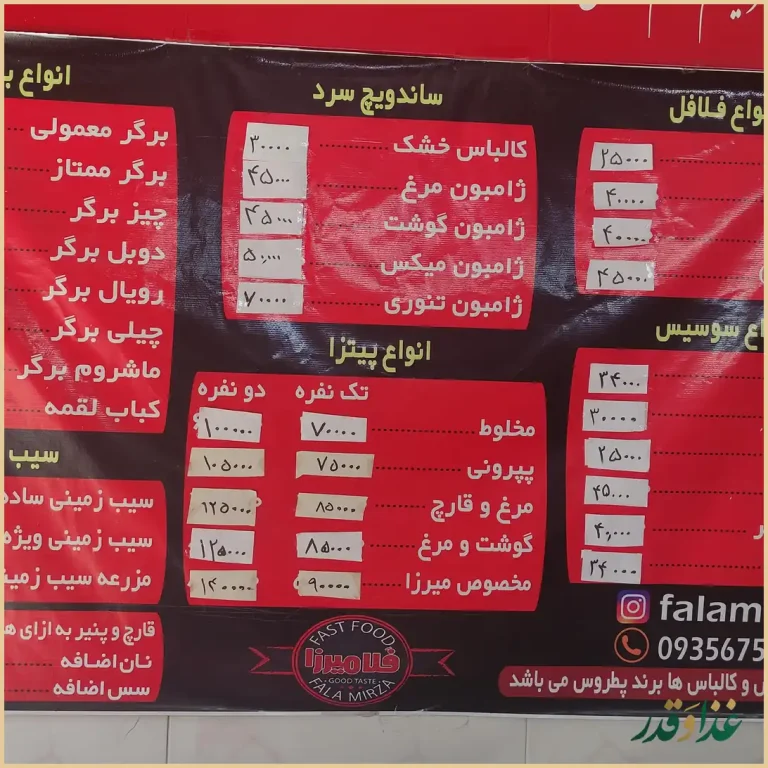 انواع فلافل
۲۵۰۰۰
۴۰۰۰۰
۴۰۰۰۰
۴۵۰۰۰
انواع سوسیس
۳۴۰۰۰
۳۰۰۰۰
۲۵۰۰۰
۴۵۰۰۰
۴۰۰۰۰
۳۴۰۰۰
ساندویچ سرد
کالباس خشک ۳۰۰۰۰
ژامبون مرغ ۴۵۰۰۰
ژامبون گوشت ۴۵۰۰۰
ژامبون میکس ۵۰۰۰۰
ژامبون تنوری ۷۰۰۰۰
انواع پیتزا
تک نفره دو نفره
مخلوط ۷۰۰۰۰ ۱۰۰۰۰۰
پپرونی ۷۵۰۰۰ ۱۰۵۰۰۰
مرغ و قارچ ۸۵۰۰۰ ۱۲۵۰۰۰
گوشت و مرغ ۸۵۰۰۰ ۱۲۵۰۰۰
مخصوص میرزا ۹۰۰۰۰ ۱۴۰۰۰۰
انواع
برگر معمولی
برگر ممتاز
چیز برگر
دوبل برگر
رویال برگر
چیلی برگر
ماشروم برگر
کباب لقمه
سیب
سیب زمینی ساده
سیب زمینی ویژه
مزرعه سیب زمینی
قارچ و پنیر به ازای
نان اضافه
سس اضافه
FAST FOOD
فلامیرزا
GOOD TASTE
FALA MIRZA
falam
0935675
و کالباس ها برند پطروس می باشد
غذا و قدر